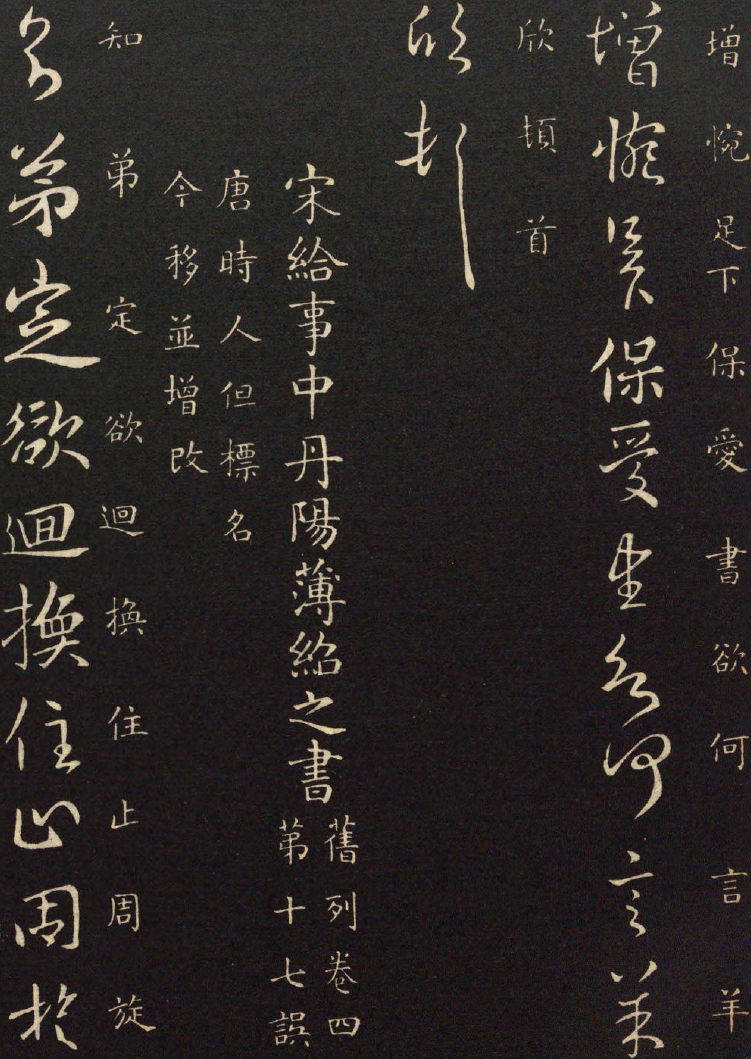 增惋足下保愛書欲何言羊
增惋足下保愛書欲何言羊
欣頓首
欣頓首
宋給事中丹陽薄紹之書
舊列卷四
第十七誤
唐時人但標名
今移並增改
知弟定欲迴換住止周旋
知弟定欲迴換住止周旋